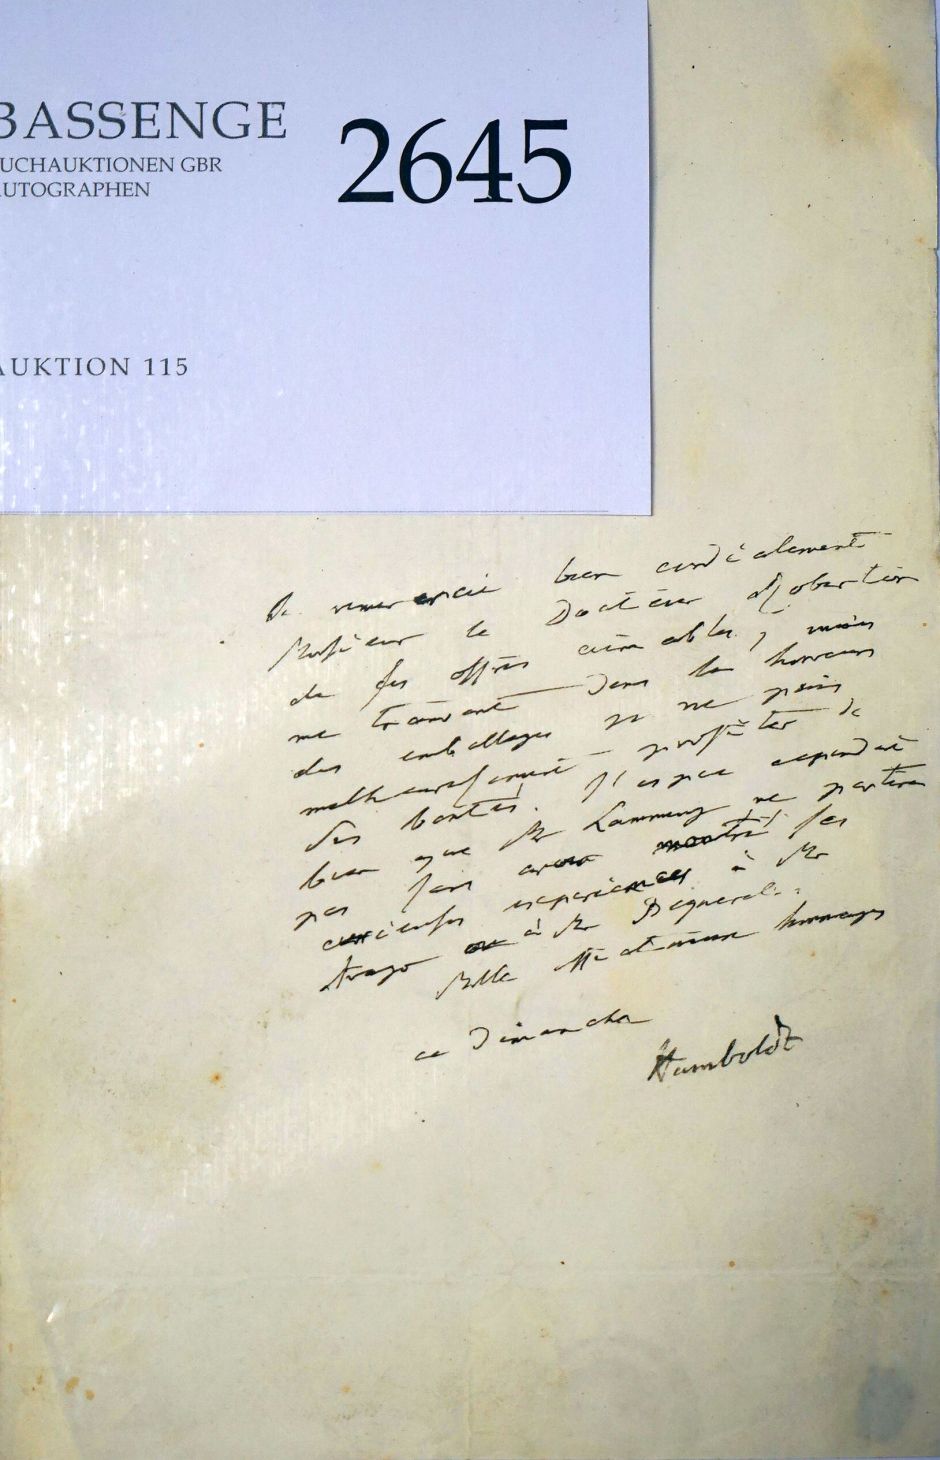 BASSENGE
UCHAUKTIONEN GBR
AUTOGRAPHEN
2645
AUKTION 115
Je remercie bien cordialement
Monsieur le Docteur
de ses offres aimables, mais
me trouvant dans les horreurs
des emballages je ne puis
malheureusement profiter de
ses bontés. J'espere cependant
bien que Mr ne partira
pas sans avoir montré ses
curieuses experiences à Mr
Arago ou à Mr Bequerel.
Mille hommages
ce Dimanche
Humboldt